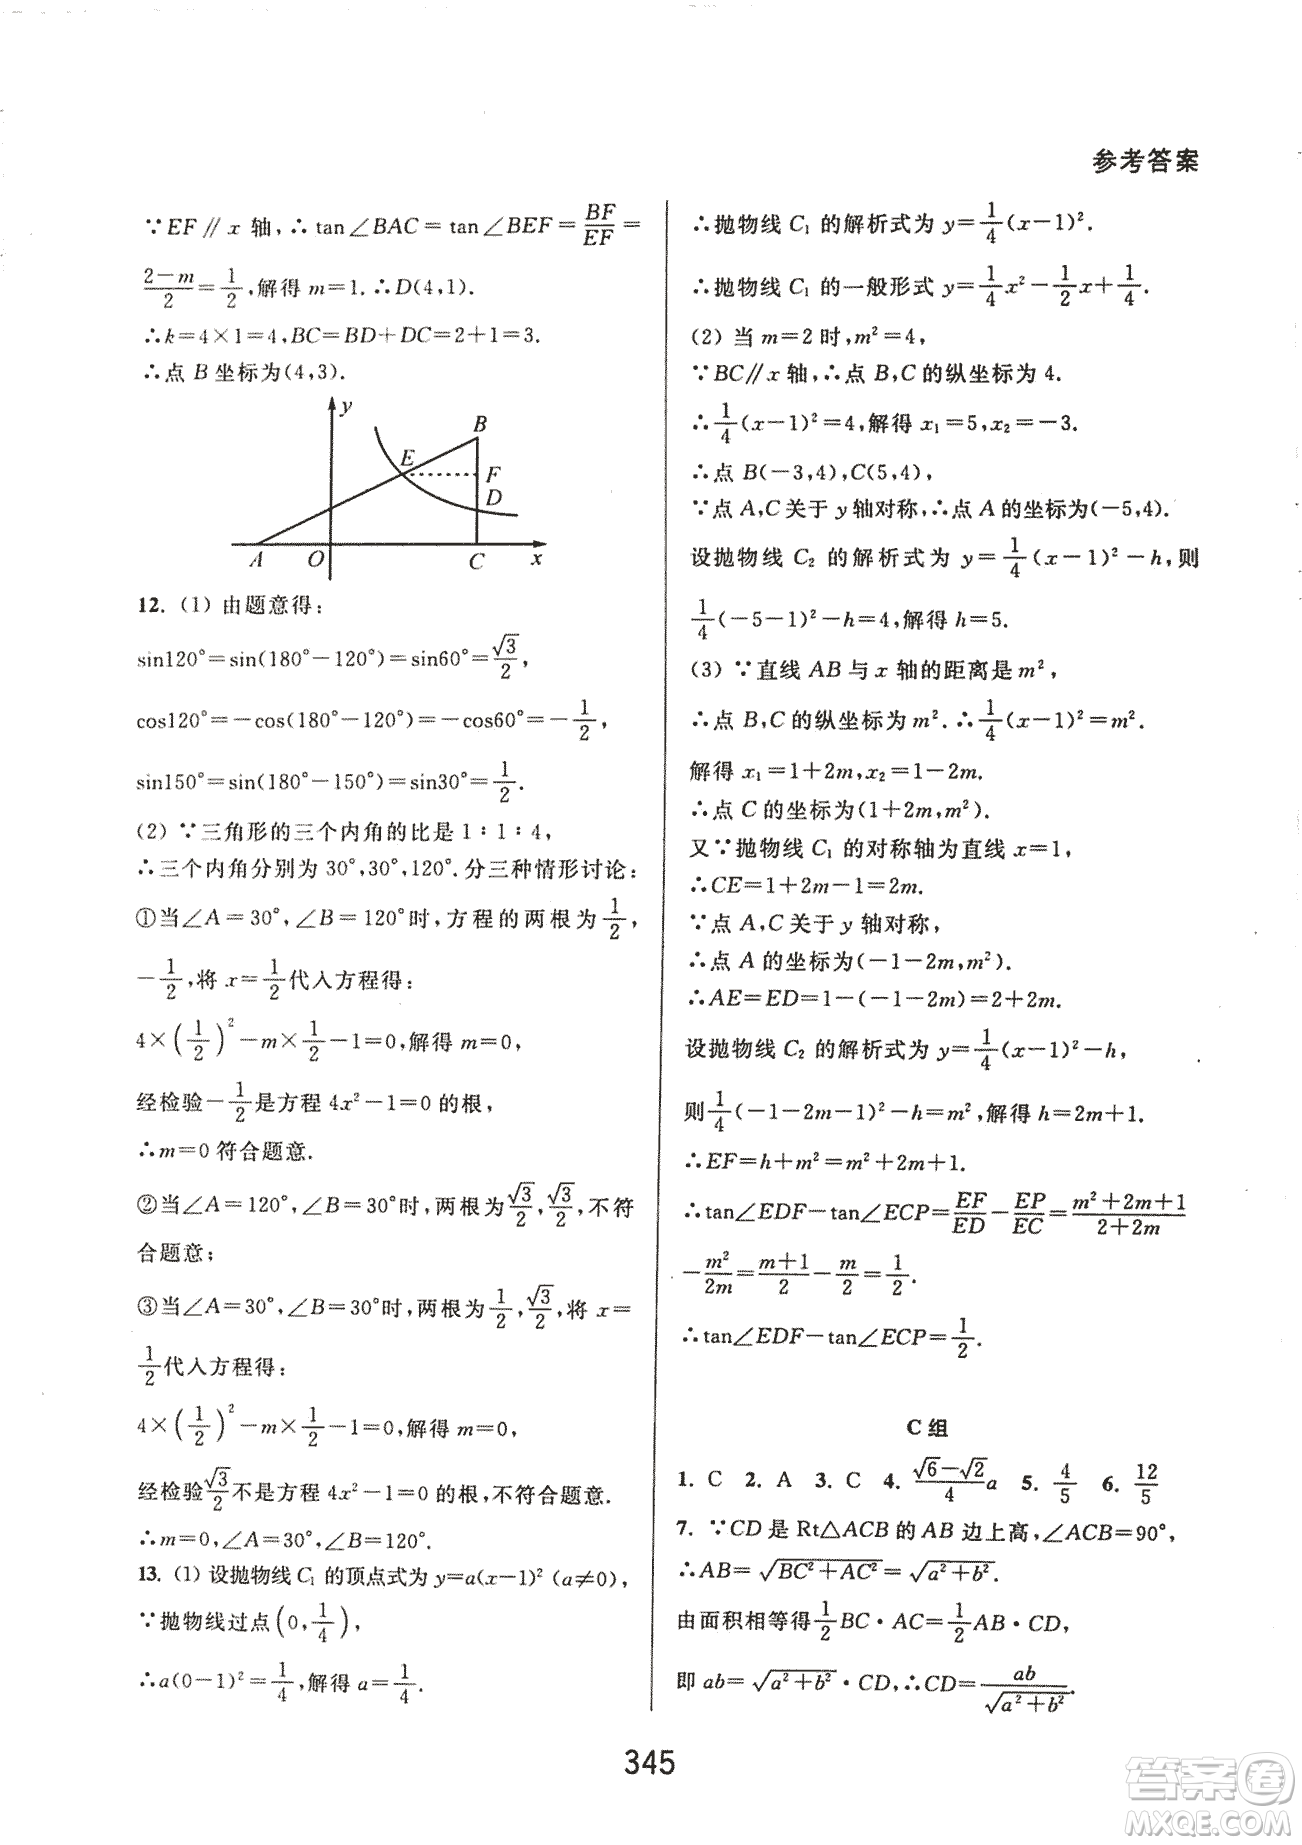 参考答案
∵EF∥x 轴,∴tan∠BAC=tan∠BEF=BF/EF=
(2-m)/2=1/2,解得 m=1.∴D(4,1).
∴k=4×1=4,BC=BD+DC=2+1=3.
∴点 B 坐标为(4,3).
y
B
E
F
D
A O C x
12. (1) 由题意得:
sin120°=sin(180°-120°)=sin60°=√3/2,
cos120°=-cos(180°-120°)=-cos60°=-1/2,
sin150°=sin(180°-150°)=sin30°=1/2.
(2) ∵三角形的三个内角的比是 1∶1∶4,
∴三个内角分别为 30°,30°,120°.分三种情形讨论:
①当∠A=30°,∠B=120°时,方程的两根为1/2,
-1/2,将 x=1/2代入方程得:
4×(1/2)²-m×1/2-1=0,解得 m=0,
经检验-1/2是方程 4x²-1=0 的根,
∴m=0 符合题意.
②当∠A=120°,∠B=30°时,两根为√3/2,√3/2,不符
合题意;
③当∠A=30°,∠B=30°时,两根为1/2,√3/2,将 x=
1/2代入方程得:
4×(1/2)²-m×1/2-1=0,解得 m=0,
经检验√3/2不是方程 4x²-1=0 的根,不符合题意.
∴m=0,∠A=30°,∠B=120°.
13. (1) 设抛物线 C₁ 的顶点式为 y=a(x-1)² (a≠0),
∵抛物线过点(0,1/4),
∴a(0-1)²=1/4,解得 a=1/4.
∴抛物线 C₁ 的解析式为 y=1/4(x-1)².
∴抛物线 C₁ 的一般形式 y=1/4x²-1/2x+1/4.
(2) 当 m=2 时,m²=4,
∵BC∥x 轴,∴点 B,C 的纵坐标为 4.
∴1/4(x-1)²=4,解得 x₁=5,x₂=-3.
∴点 B(-3,4),C(5,4),
∵点 A,C 关于 y 轴对称,∴点 A 的坐标为(-5,4).
设抛物线 C₂ 的解析式为 y=1/4(x-1)²-h,则
1/4(-5-1)²-h=4,解得 h=5.
(3) ∵直线 AB 与 x 轴的距离是 m²,
∴点 B,C 的纵坐标为 m².∴1/4(x-1)²=m².
解得 x₁=1+2m,x₂=1-2m.
∴点 C 的坐标为(1+2m,m²).
又∵抛物线 C₁ 的对称轴为直线 x=1,
∴CE=1+2m-1=2m.
∵点 A,C 关于 y 轴对称,
∴点 A 的坐标为(-1-2m,m²).
∴AE=ED=1-(-1-2m)=2+2m.
设抛物线 C₂ 的解析式为 y=1/4(x-1)²-h,
则1/4(-1-2m-1)²-h=m²,解得 h=2m+1.
∴EF=h+m²=m²+2m+1.
∴tan∠EDF-tan∠ECP=EF/ED-EP/EC=(m²+2m+1)/(2+2m)
-m²/2m=(m+1)/2-m/2=1/2.
∴tan∠EDF-tan∠ECP=1/2.
C 组
1. C 2. A 3. C 4. (√6-√2)/4 a 5. 4/5 6. 12/5
7. ∵CD 是 Rt△ACB 的 AB 边上高,∠ACB=90°,
∴AB=√(BC²+AC²)=√(a²+b²).
由面积相等得1/2BC·AC=1/2AB·CD,
即 ab=√(a²+b²)·CD,∴CD=ab/√(a²+b²).
345
答案卷
MXQE.COM